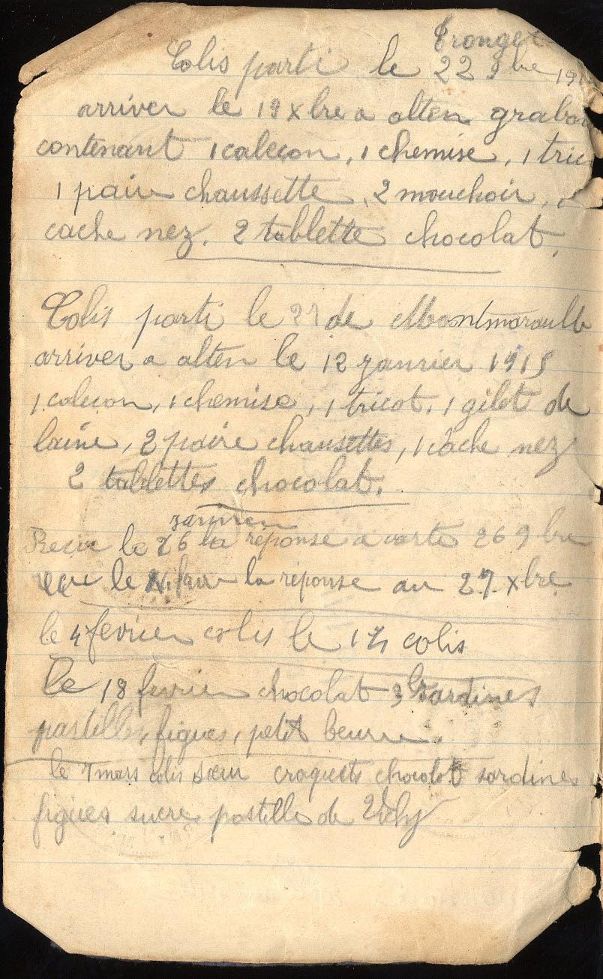 Tronget
Colis parti le 22 9bre 191
arriver le 19 xbre a alten grabo
contenant 1 calecon, 1 chemise, 1 tric
1 pair chaussette, 2 mouchoir,
cache nez. 2 tablette chocolat,
Colis parti le 21 de Montmarault
arriver a alten le 12 janvier 1915
1 calecon, 1 chemise, 1 tricot, 1 gilet de
laine, 2 paire chaussettes, 1 cache nez
2 tablettes chocolat.
janvier
Recue le 26 la réponse a carte 26 9bre
le la réponse au 27 xbre
le 4 fevrier colis le 14 colis
le 18 fevrier chocolat sardines
pastilles, figues, petit beurre.
le 7 mars colis sœur croquets chocolat sardines
figues sucre pastille de Vichy